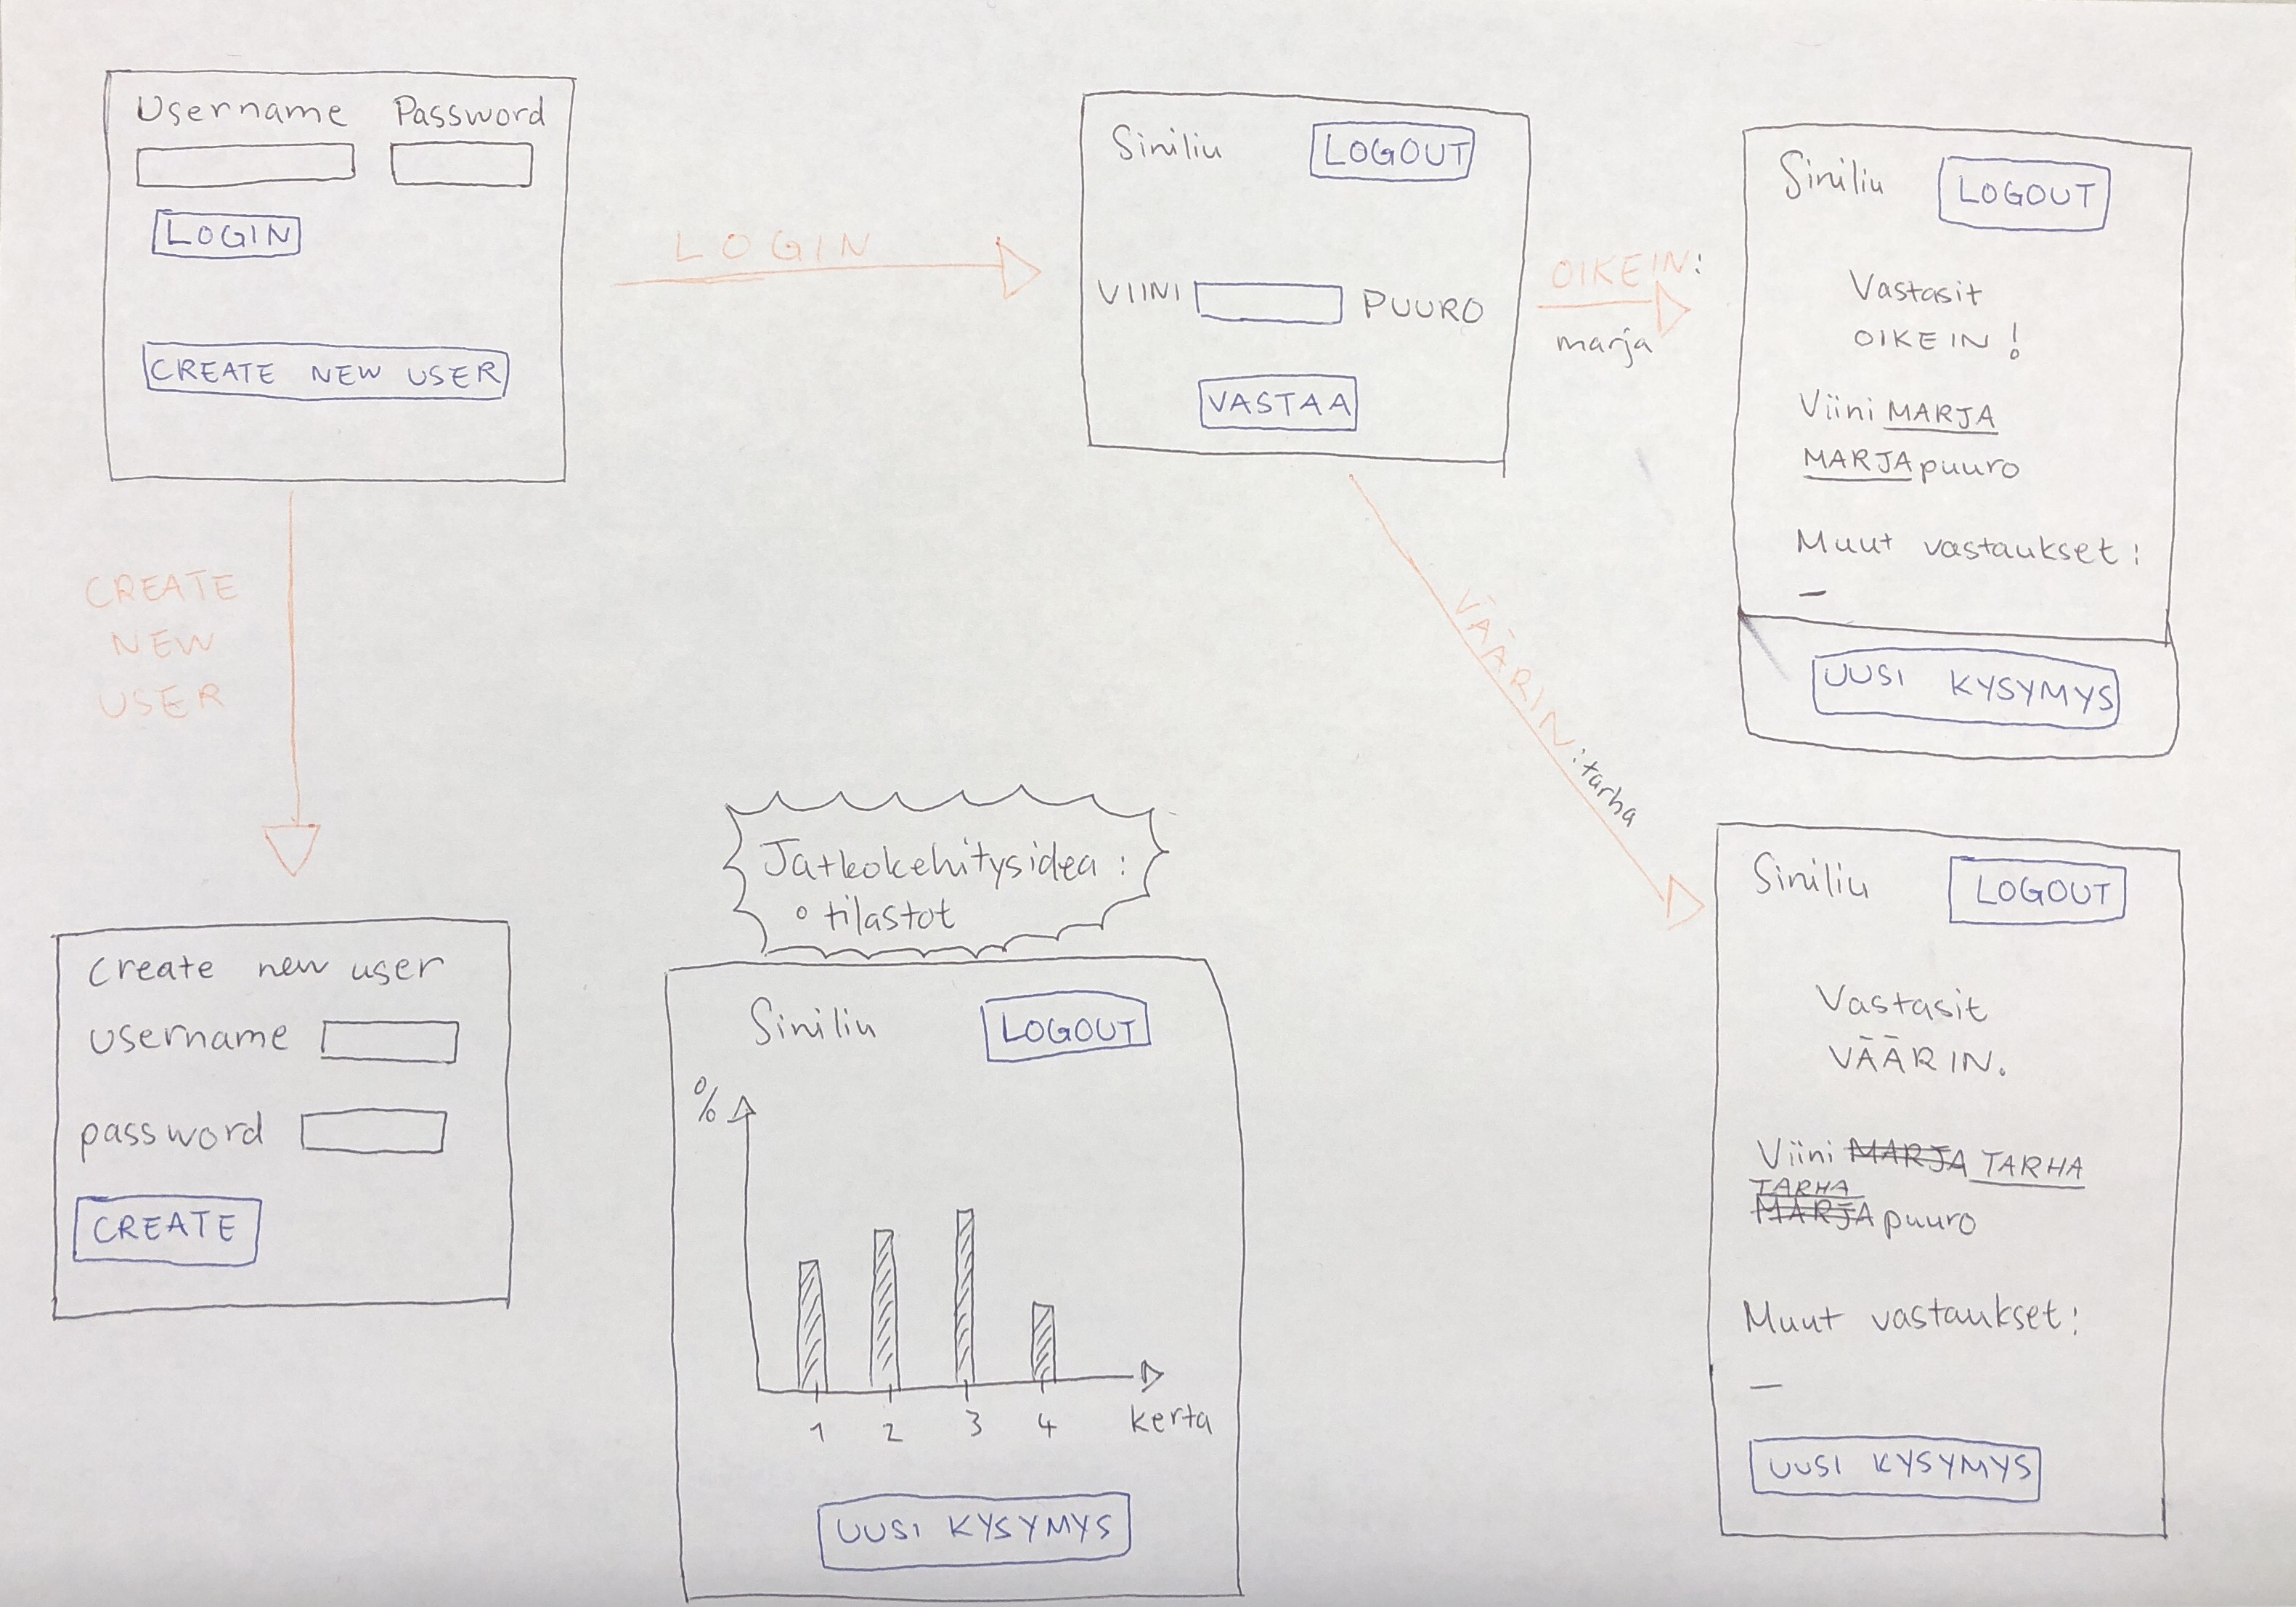 Username Password
LOGIN
CREATE NEW USER
LOGIN
Siniliu LOGOUT
VIINI PUURO
VASTAA
OIKEIN:
marja
Siniliu LOGOUT
Vastasit
OIKEIN!
Viini MARJA
MARJApuuro
Muut vastaukset:
–
UUSI KYSYMYS
CREATE
NEW
USER
VÄÄRIN: tarha
Create new user
username
password
CREATE
Jatkokehitysidea:
° tilastot
Siniliu LOGOUT
%
1 2 3 4 kerta
UUSI KYSYMYS
Siniliu LOGOUT
Vastasit
VÄÄRIN.
Viini MARJA TARHA
TARHA
MARJApuuro
Muut vastaukset:
–
UUSI KYSYMYS